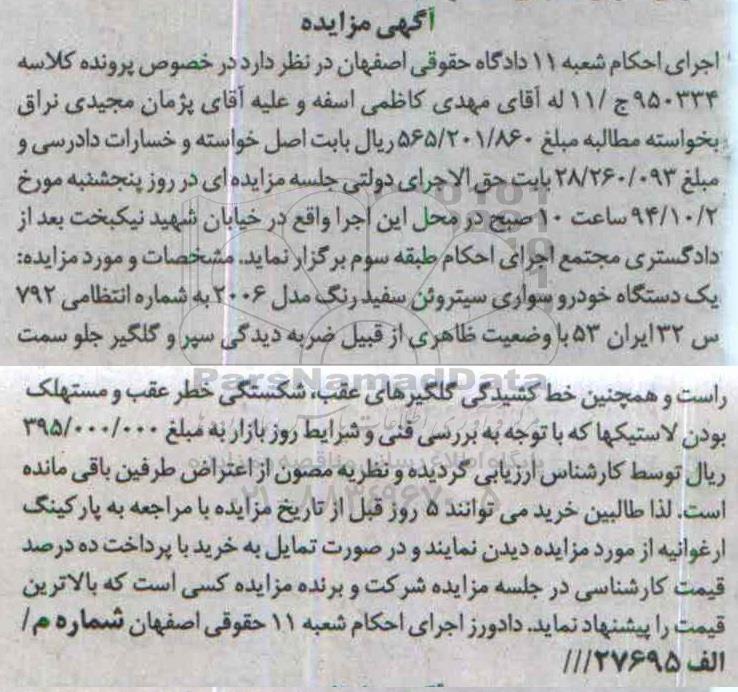 آگهی مزایده
اجرای احکام شعبه ۱۱ دادگاه حقوقی اصفهان در نظر دارد در خصوص پرونده کلاسه
۹۵۰۳۳۴ ج /۱۱ له آقای مهدی کاظمی اسفه و علیه آقای پژمان مجیدی نراق
بخواسته مطالبه مبلغ ۵۶۵/۲۰۱/۸۶۰ ریال بابت اصل خواسته و خسارات دادرسی و
مبلغ ۲۸/۲۶۰/۰۹۳ بابت حق الاجرای دولتی جلسه مزایده ای در روز پنجشنبه مورخ
۹۴/۱۰/۲ ساعت ۱۰ صبح در محل این اجرا واقع در خیابان شهید نیکبخت بعد از
دادگستری مجتمع اجرای احکام طبقه سوم برگزار نماید. مشخصات و مورد مزایده:
یک دستگاه خودرو سواری سیتروئن سفید رنگ مدل ۲۰۰۶ به شماره انتظامی ۷۹۲
س ۳۲ ایران ۵۳ با وضعیت ظاهری از قبیل ضربه دیدگی سپر و گلگیر جلو سمت
راست و همچنین خط کشیدگی گلگیرهای عقب، شکستگی خطر عقب و مستهلک
ParsNamadData
بودن لاستیکها که با توجه به بررسی فنی و شرایط روز بازار به مبلغ ۳۹۵/۰۰۰/۰۰۰
ریال توسط کارشناس ارزیابی گردیده و نظریه مصون از اعتراض طرفین باقی مانده
است. لذا طالبین خرید می توانند ۵ روز قبل از تاریخ مزایده با مراجعه به پارکینگ
ارغوانیه از مورد مزایده دیدن نمایند و در صورت تمایل به خرید با پرداخت ده درصد
قیمت کارشناسی در جلسه مزایده شرکت و برنده مزایده کسی است که بالاترین
قیمت را پیشنهاد نماید. دادورز اجرای احکام شعبه ۱۱ حقوقی اصفهان شماره م/
الف ۲۷۶۹۵///